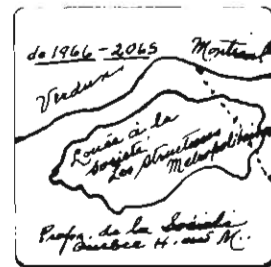 de 1966-2065
Montréal
Verdun
Louée à la
Société
Les Structures
Métropolitaines
Propr. de la Société
Québec H. au M.